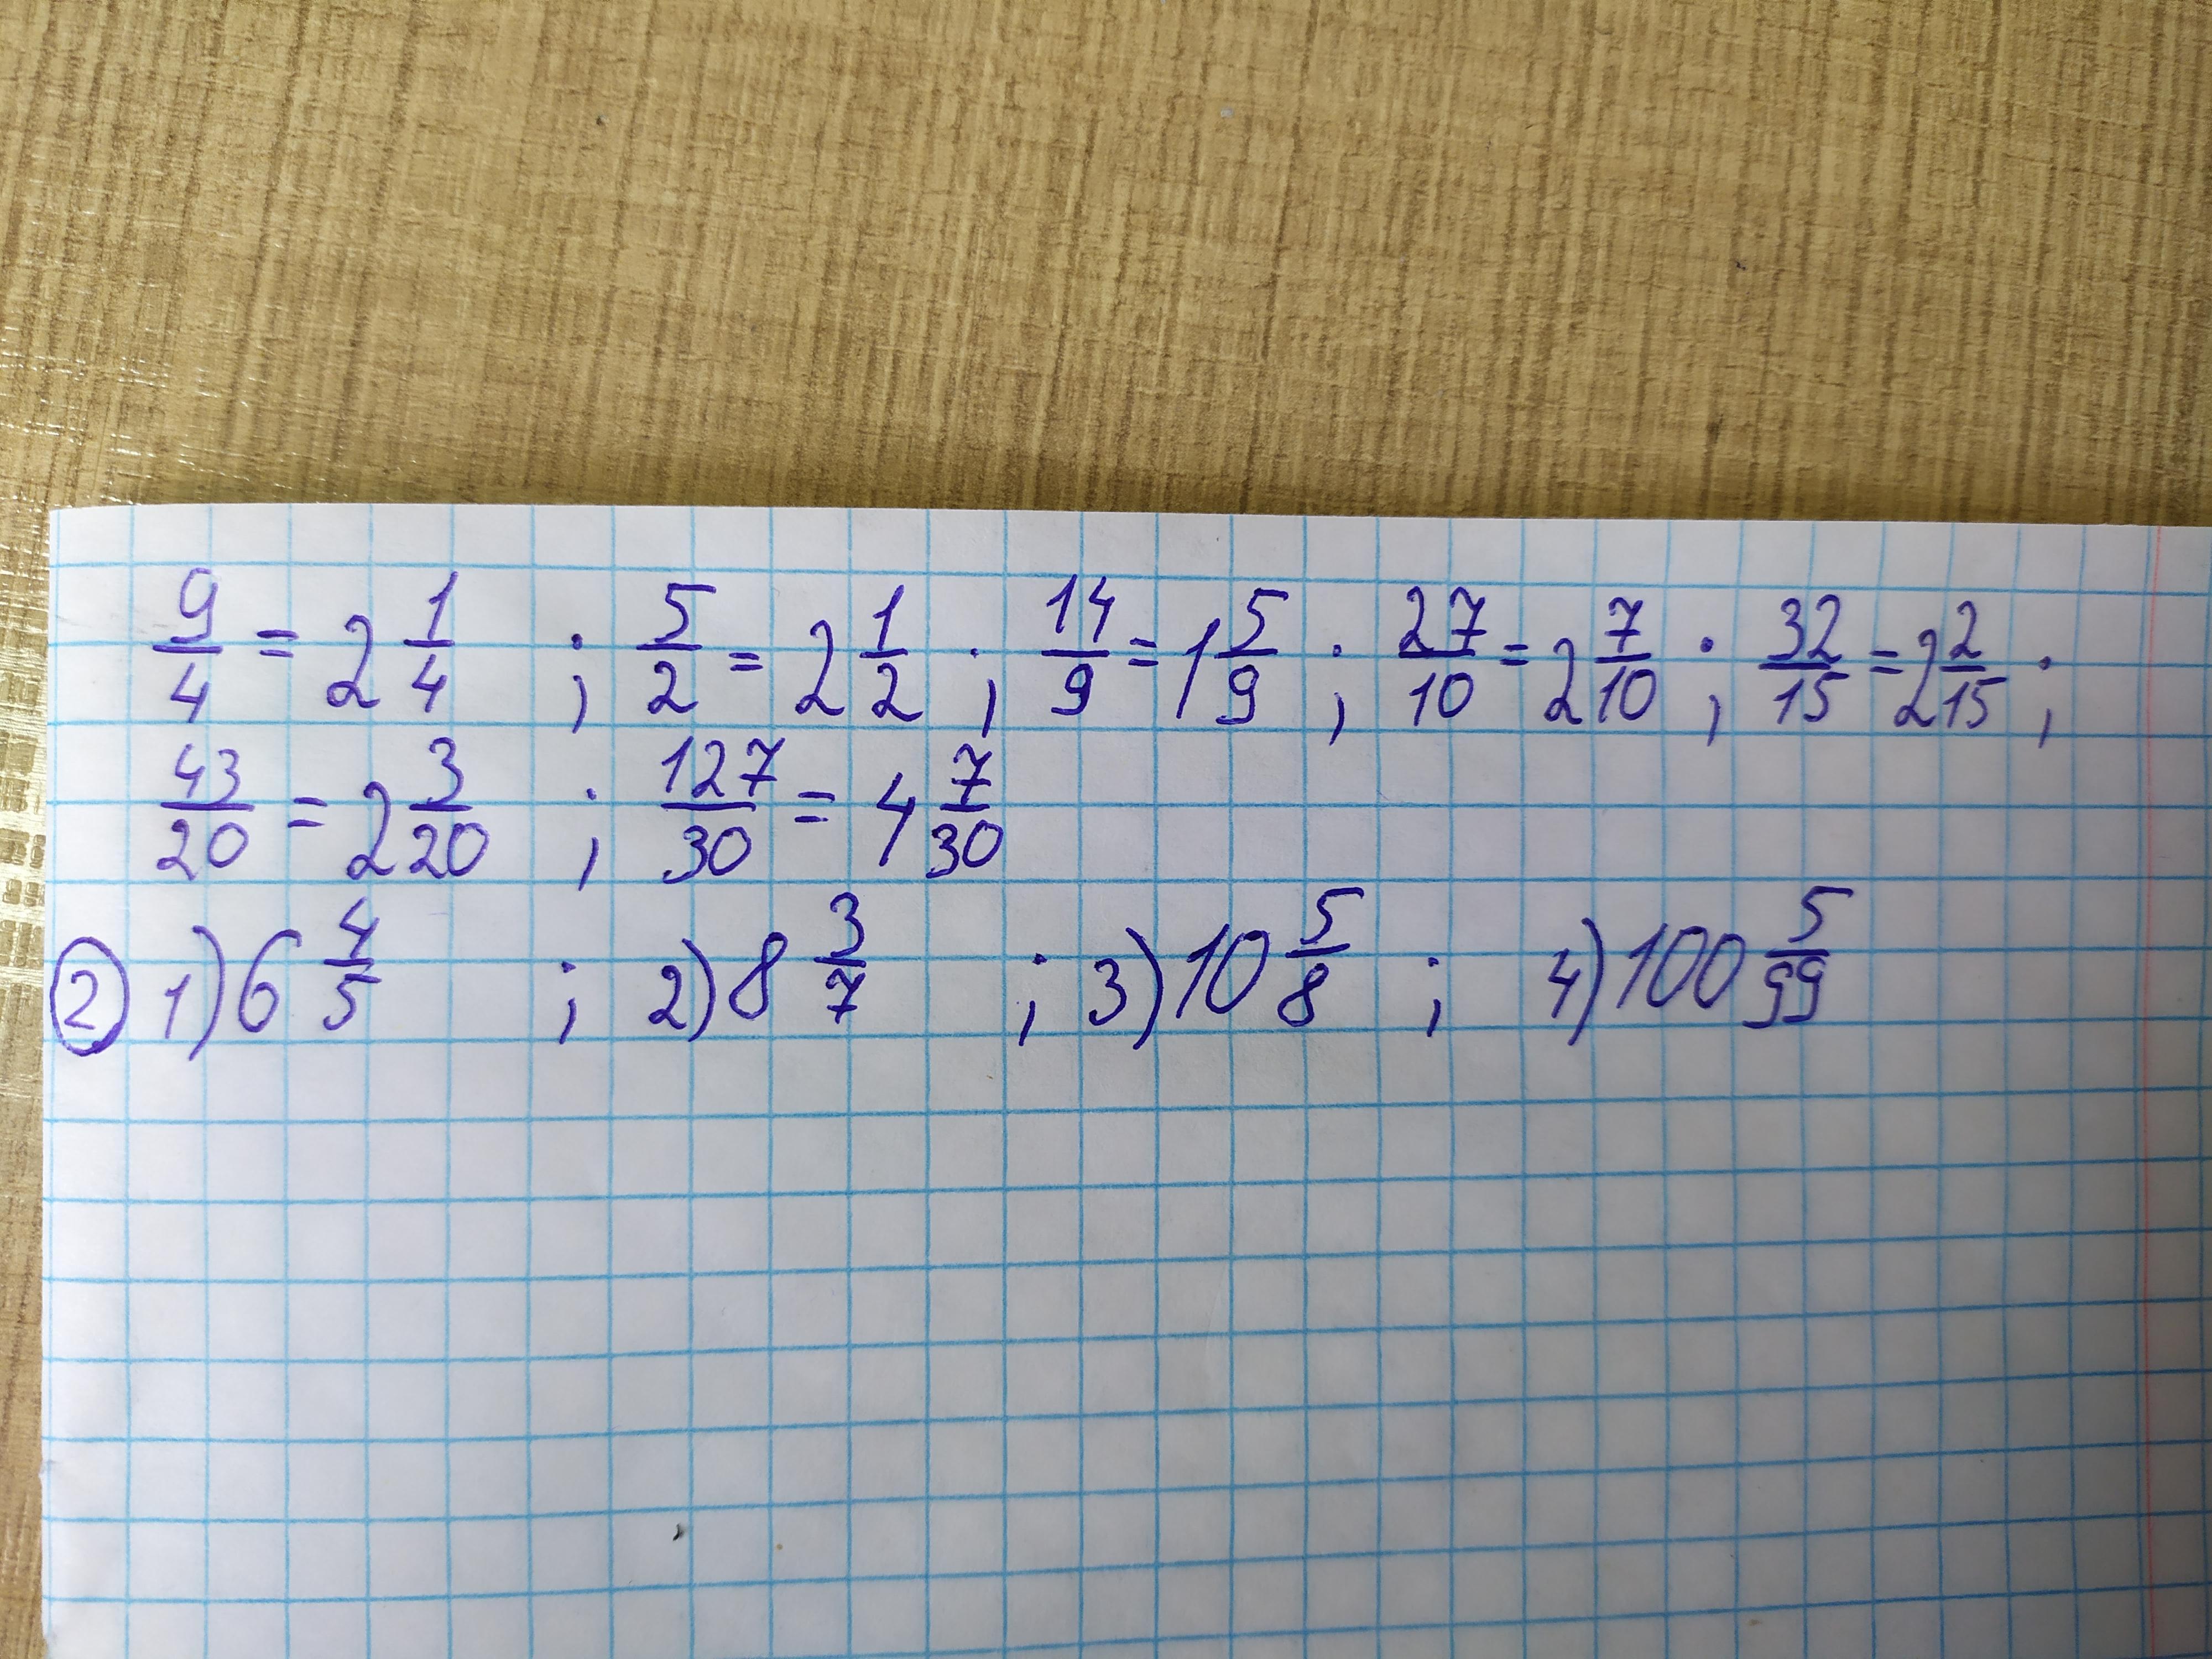 9/4 = 2 1/4 ; 5/2 = 2 1/2 ; 14/9 = 1 5/9 ; 27/10 = 2 7/10 ; 32/15 = 2 2/15 ;
43/20 = 2 3/20 ; 127/30 = 4 7/30
② 1) 6 4/5 ; 2) 8 3/7 ; 3) 10 5/8 ; 4) 100 5/99